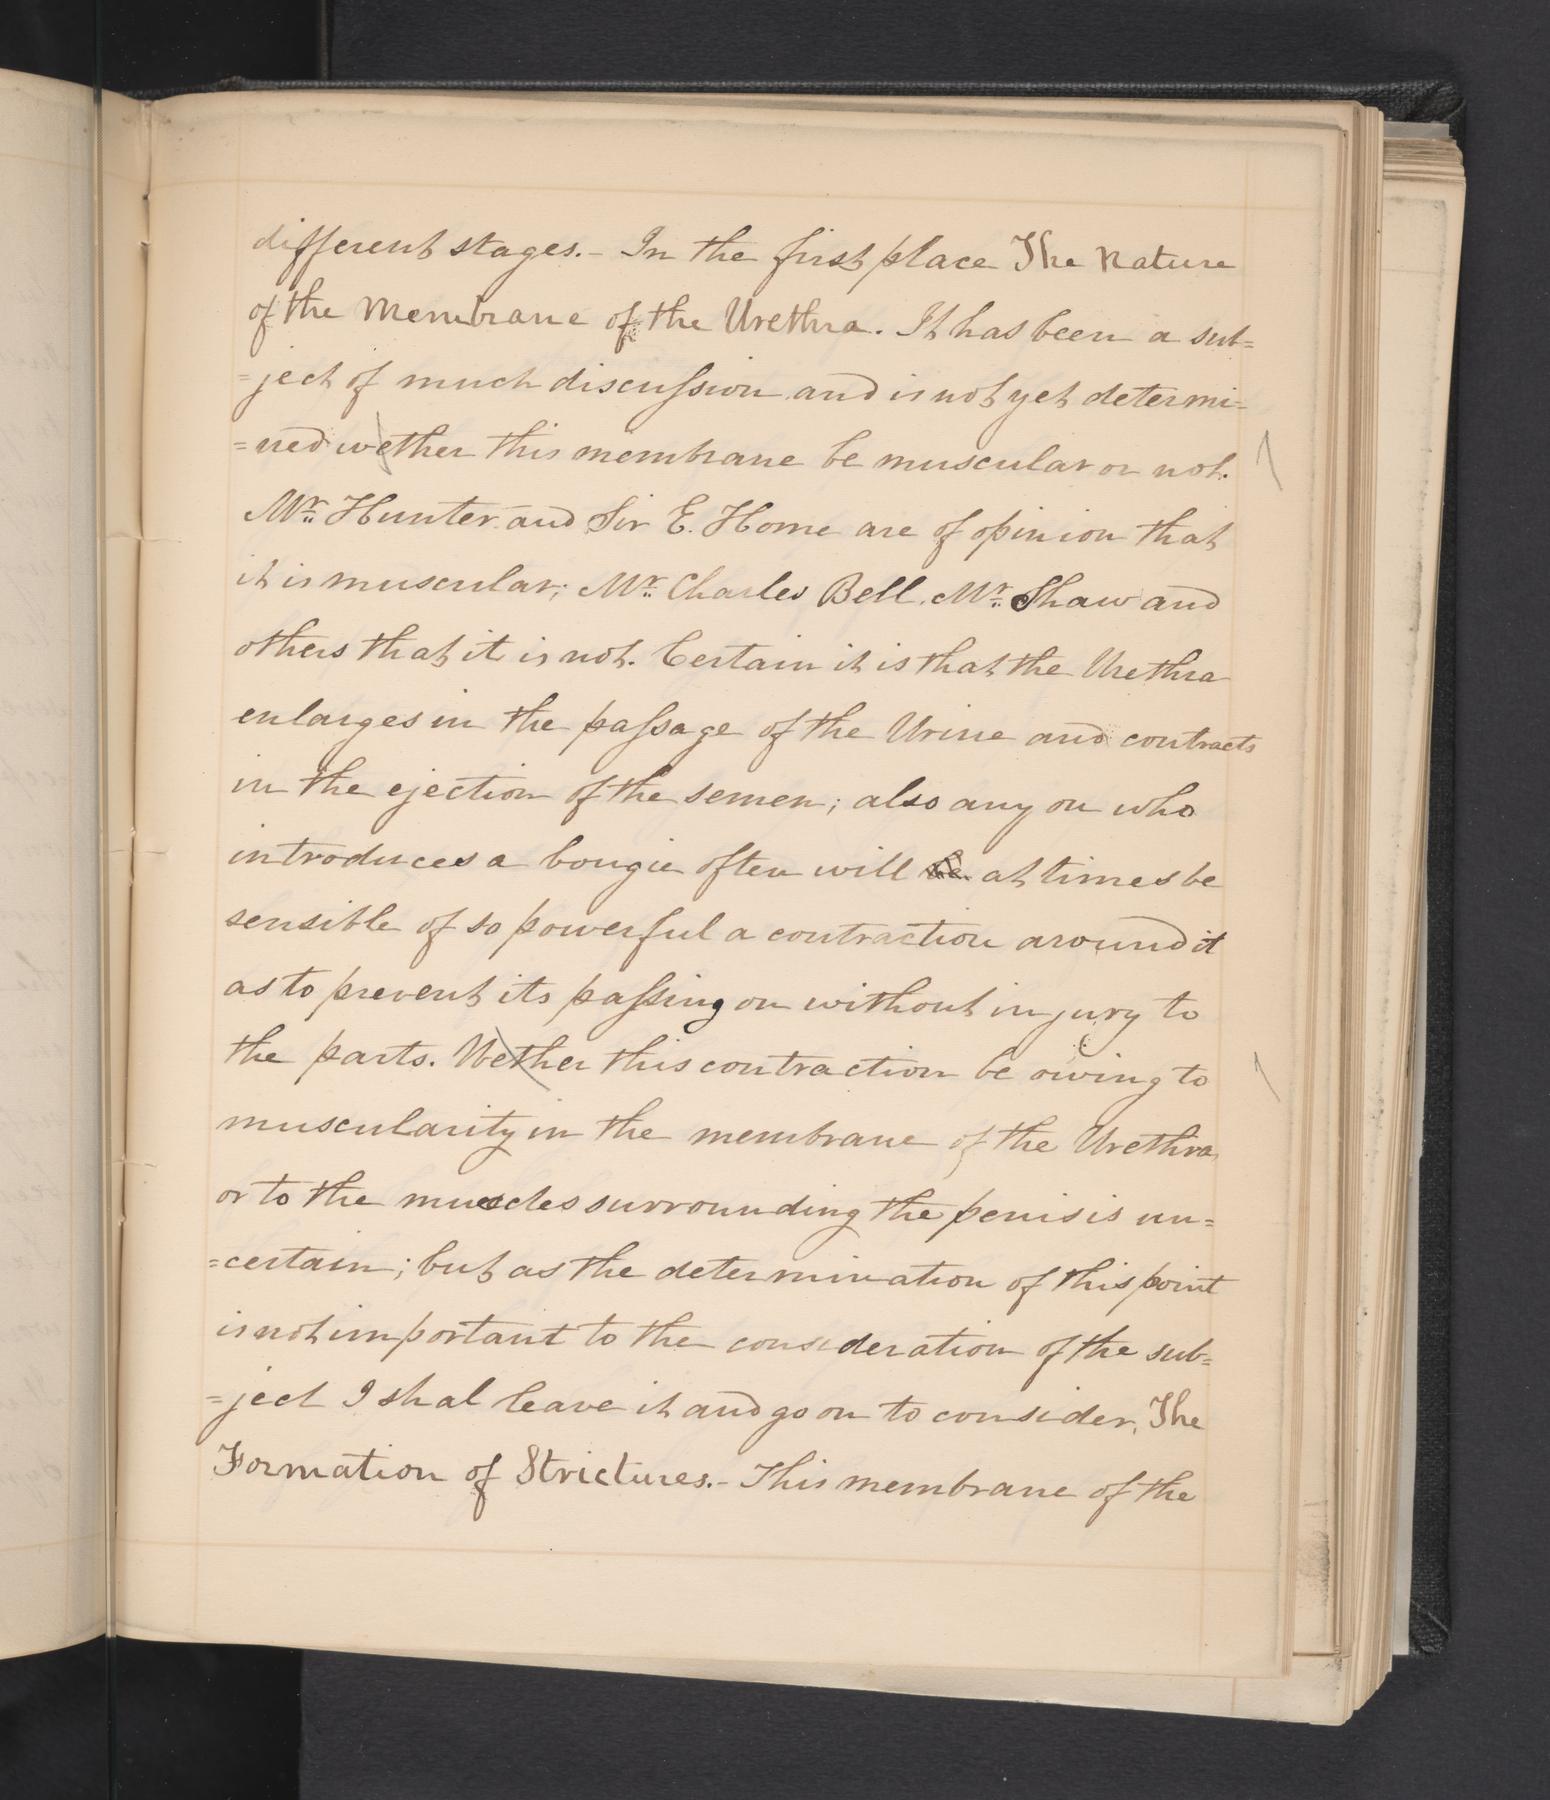 different stages.- In the first place The Nature
of the Membrane of the Urethra. It has been a sub=
=ject of much discussion and is not yet determi=
=ned wether this membrane be muscular or not.
Mr. Hunter and Sir E. Home are of opinion that
it is muscular; Mr. Charles Bell, Mr. Shaw and
others that it is not. Certain it is that the Urethra
enlarges in the passage of the Urine and contracts
in the ejection of the semen; also any on who
introduces a bougie often will be at times be
sensible of so powerful a contraction around it
as to prevent its passing on without injury to
the parts. Wether this contraction be owing to
muscularity in the membrane of the Urethra,
or to the muscles surrounding the penis is un=
=certain; but as the determination of this point
is not important to the consideration of the sub=
=ject I shal leave it and go on to consider, The
Formation of Strictures.- This membrane of the